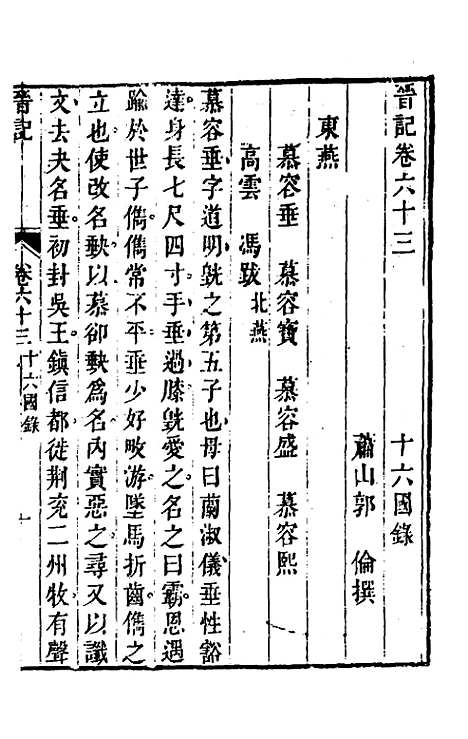 晉記卷六十三　十六國錄
蕭山郭　倫撰
東燕
慕容垂　慕容寶　慕容盛　慕容熙
高雲　馮跋北燕
慕容垂字道明皝之第五子也母曰蘭淑儀垂性豁
達身長七尺四寸手垂過膝皝愛之名之曰霸恩遇
踰於世子儁儁常不平垂少好畋游墜馬折齒儁之
立也使改名𡙇以慕卻𡙇爲名內實惡之尋又以讖
文去夬名垂初封吳王鎭信都徙荆兖二州牧有聲
晉記　卷六十三十六國錄　一